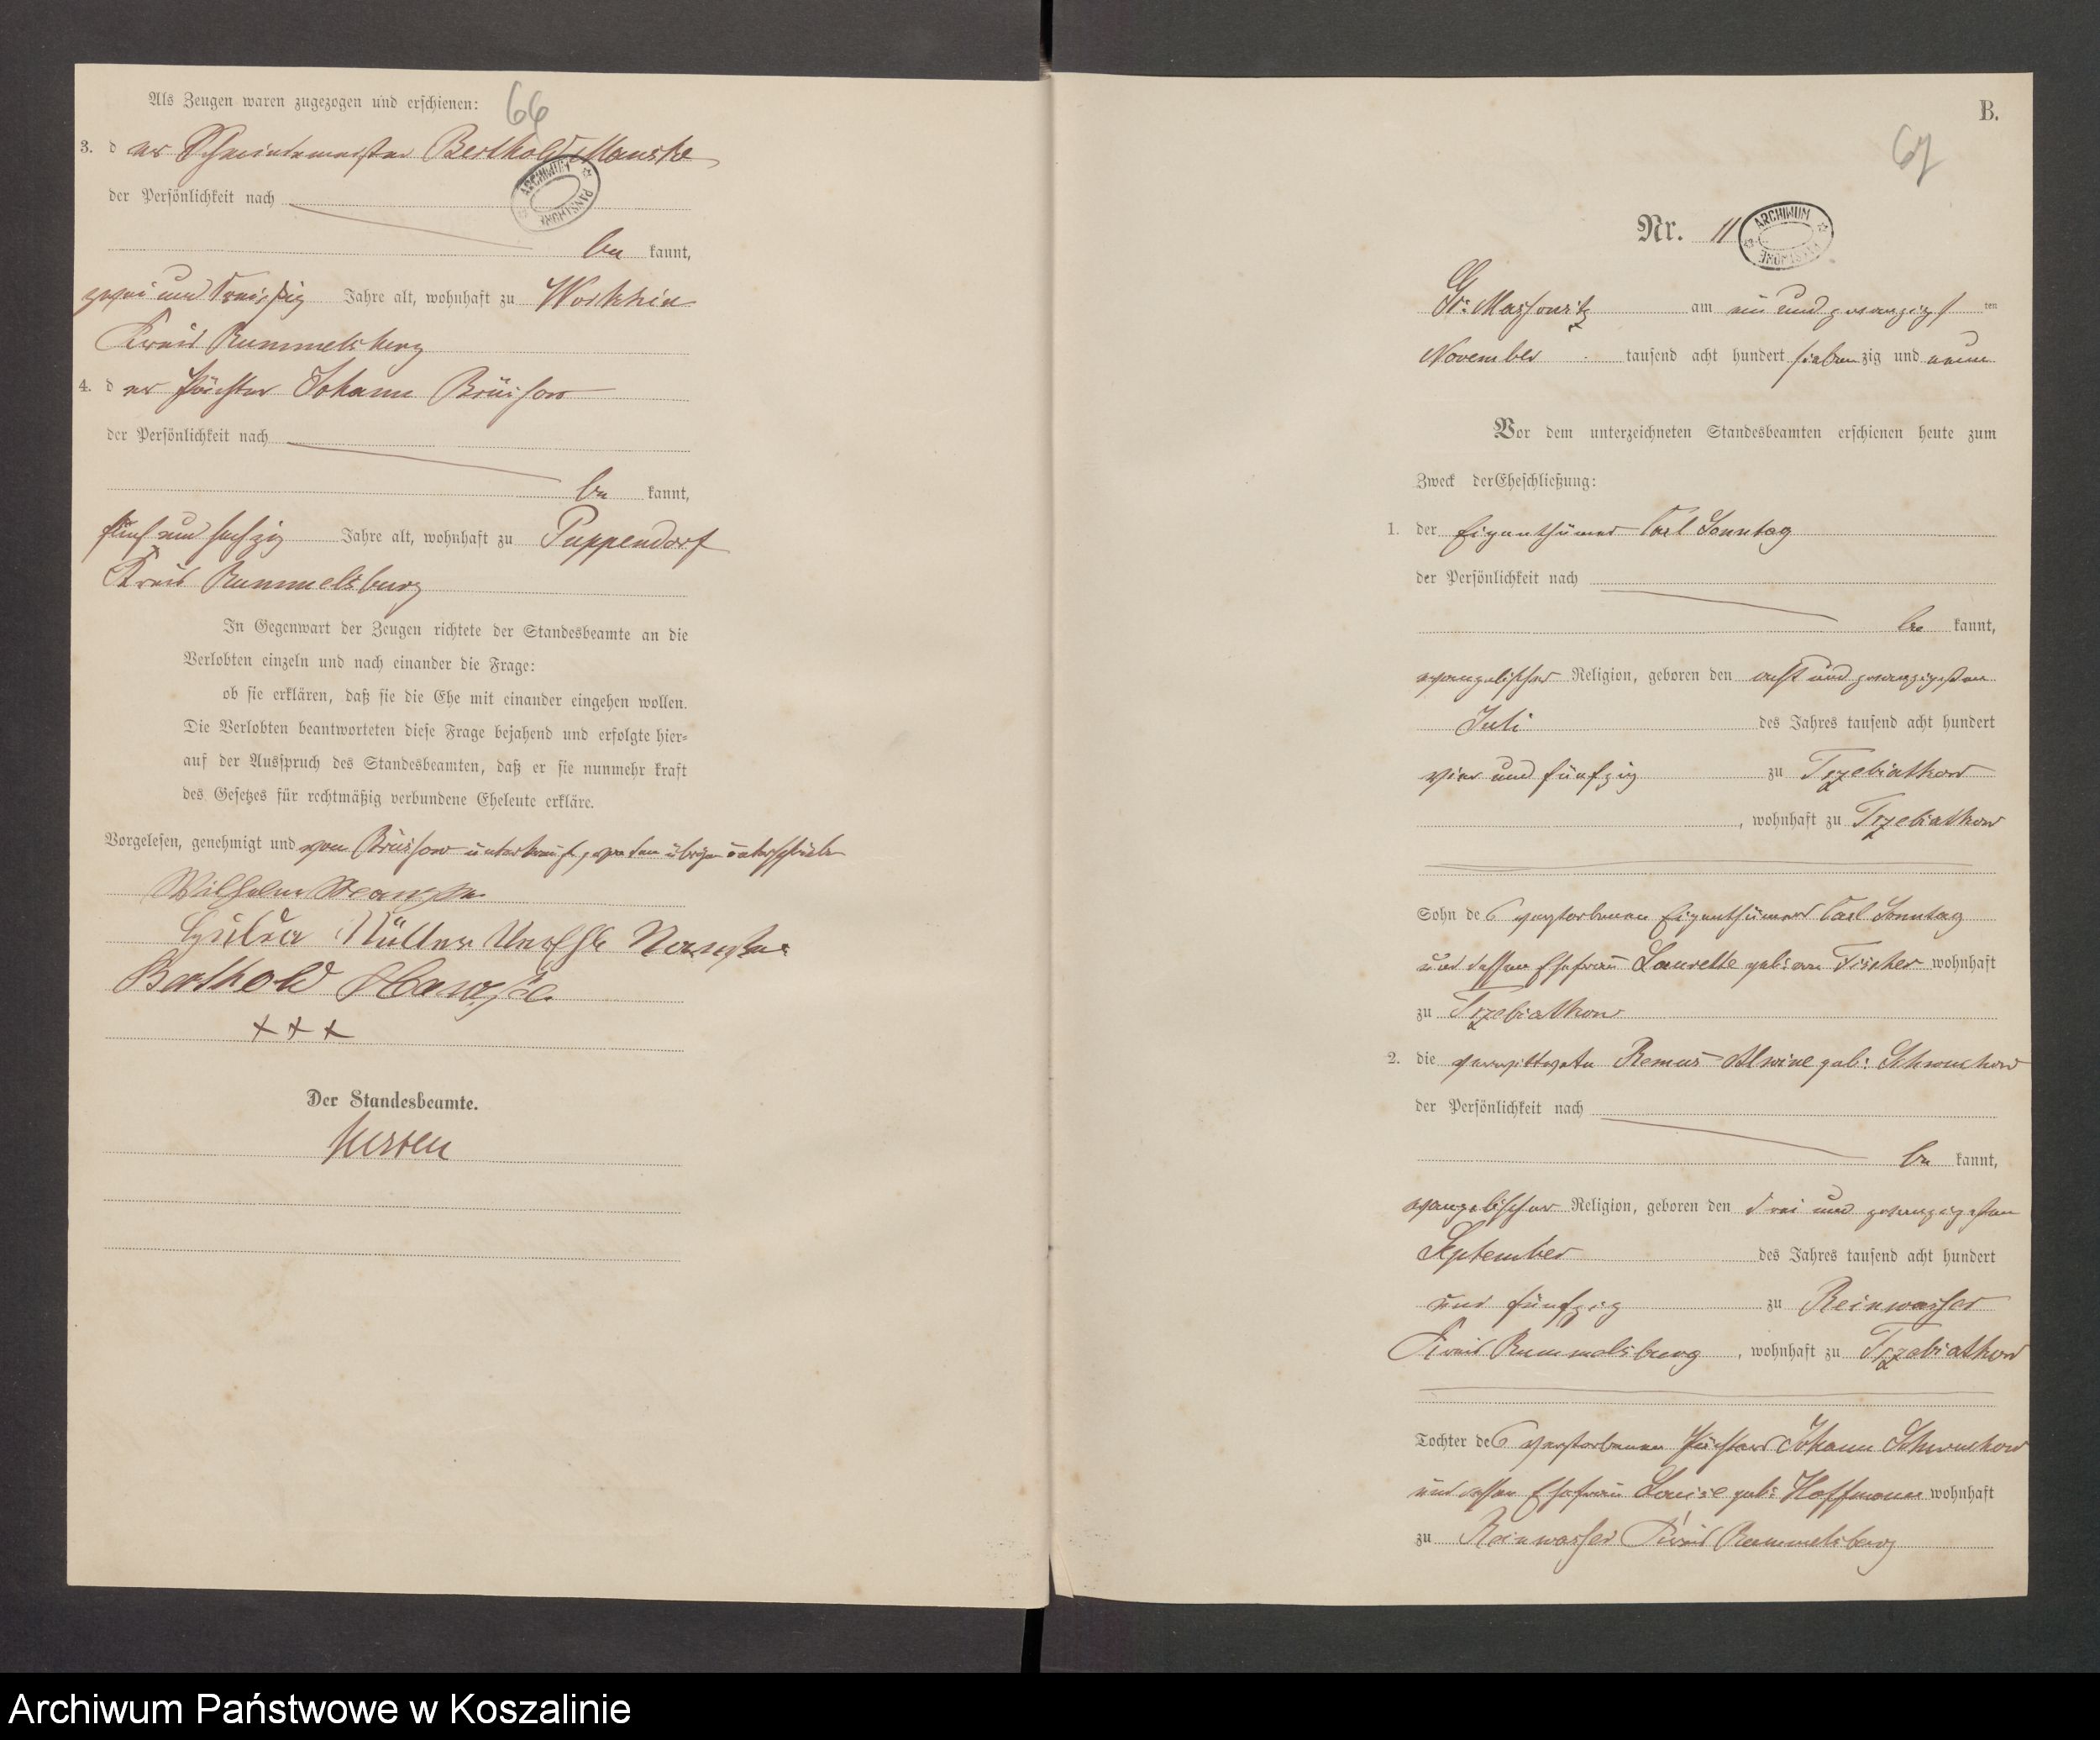 Als Zeugen waren zugezogen und erschienen:
66
3. d er Schneidermeister Berthold Manske
der Persönlichkeit nach
be kannt,
zwei und dreißig Jahre alt, wohnhaft zu Wocknin
Kreis Rummelsburg
4. d er Pächter Johann Brüssow
der Persönlichkeit nach
be kannt,
fünf und sechzig Jahre alt, wohnhaft zu Puppendorf
Kreis Rummelsburg
In Gegenwart der Zeugen richtete der Standesbeamte an die
Verlobten einzeln und nach einander die Frage:
ob sie erklären, daß sie die Ehe mit einander eingehen wollen.
Die Verlobten beantworteten diese Frage bejahend und erfolgte hier-
auf der Ausspruch des Standesbeamten, daß er sie nunmehr kraft
des Gesetzes für rechtmäßig verbundene Eheleute erkläre.
Vorgelesen, genehmigt und von Brüssow unterkreuzt, von den übrigen unterschrieben
Wilhelm Manske
Müller Manske
Berthold Manske
+++
Der Standesbeamte.
B.
67
Nr. 11
ARCHIWUM
Gr: Massowitz am ein und zwanzigst ten
November tausend acht hundert siebenzig und neun
Vor dem unterzeichneten Standesbeamten erschienen heute zum
Zweck der Eheschließung:
1. der Eigenthümer Carl Sonntag
der Persönlichkeit nach
be kannt,
evangelischer Religion, geboren den acht und zwanzigsten
Juli des Jahres tausend acht hundert
vier und fünfzig zu Trzebiatkow
, wohnhaft zu Trzebiatkow
Sohn des verstorbenen Eigenthümers Carl Sonntag
und dessen Ehefrau Laurette geborne Fischer wohnhaft
zu Trzebiatkow
2. die verwittwete Remus Alwine geb: Schwuchow
der Persönlichkeit nach
be kannt,
evangelischer Religion, geboren den drei und zwanzigsten
September des Jahres tausend acht hundert
und fünfzig zu Reinwasser
Kreis Rummelsburg , wohnhaft zu Trzebiatkow
Tochter des verstorbenen Pächters Johann Schwuchow
und dessen Ehefrau Louise geb: Hoffmann wohnhaft
zu Reinwasser Kreis Rummelsburg
Archiwum Państwowe w Koszalinie